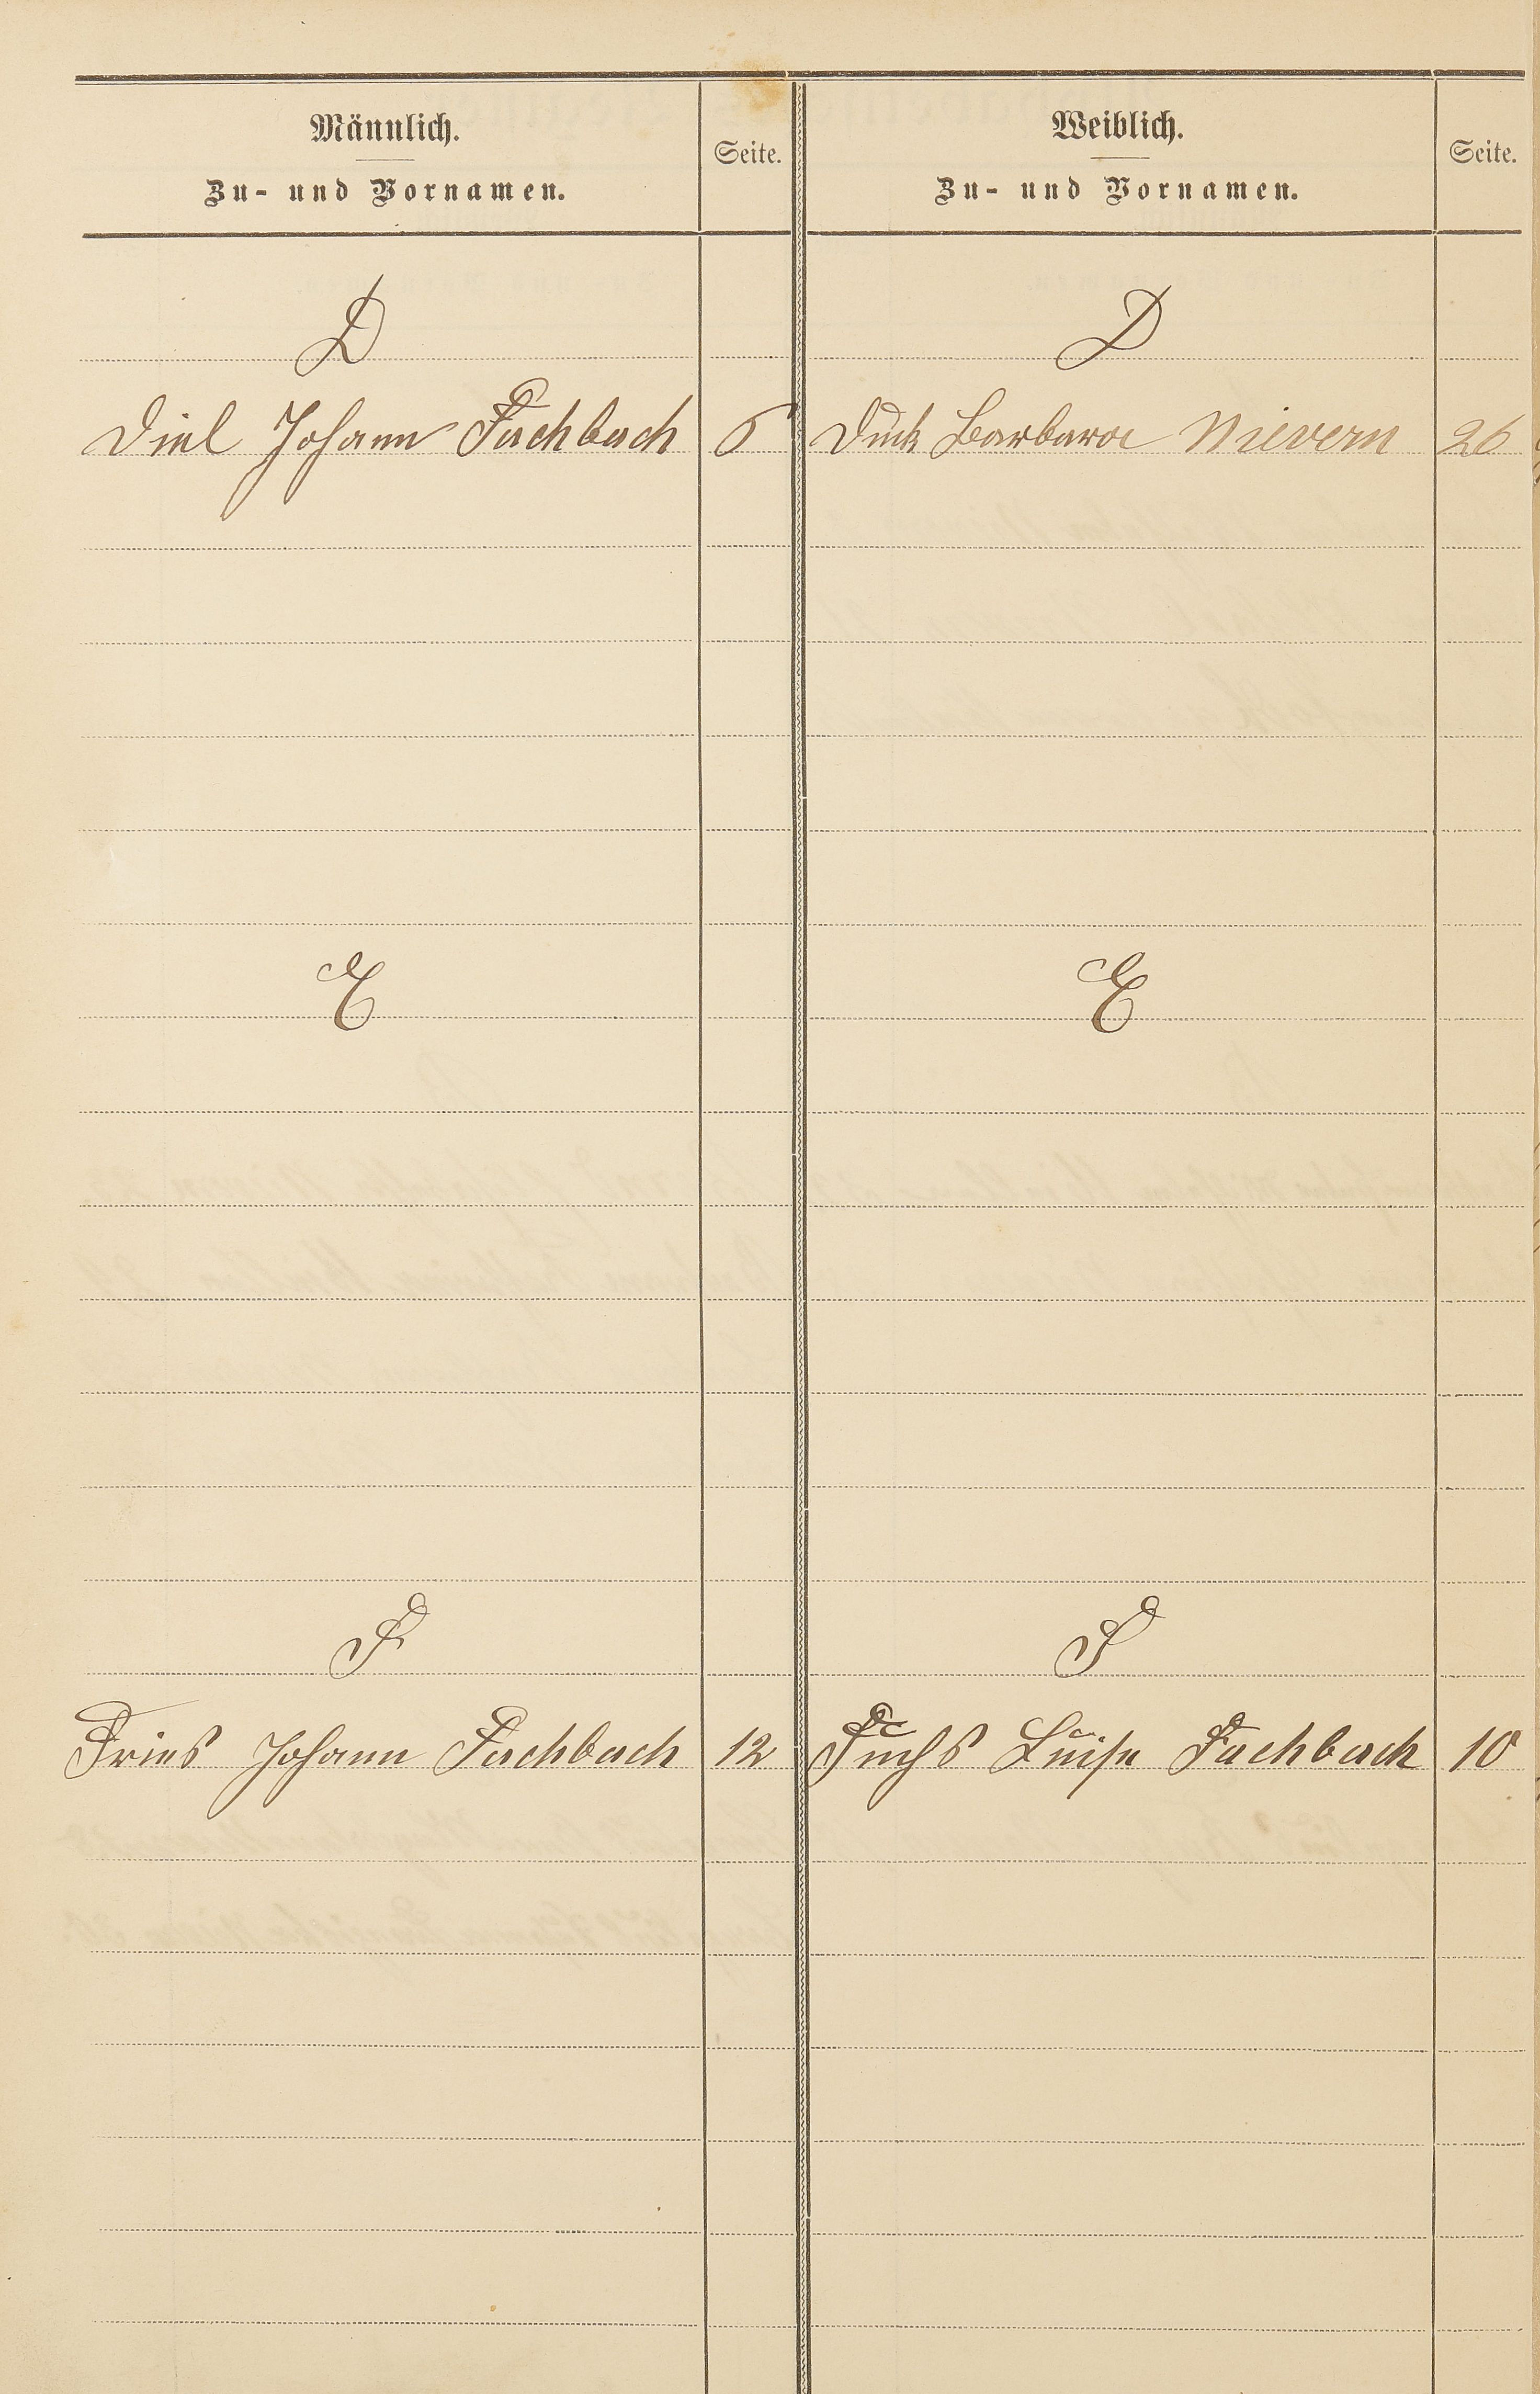 Männlich.
Zu- und Vornamen.
Seite.
Weiblich.
Zu- und Vornamen.
Seite.
D
D
Diel Johann Fachbach 6
Duck Barbara Nievern 26
E
E
F
F
Fries Johann Fachbach 12
Fuchs Luise Fachbach 10